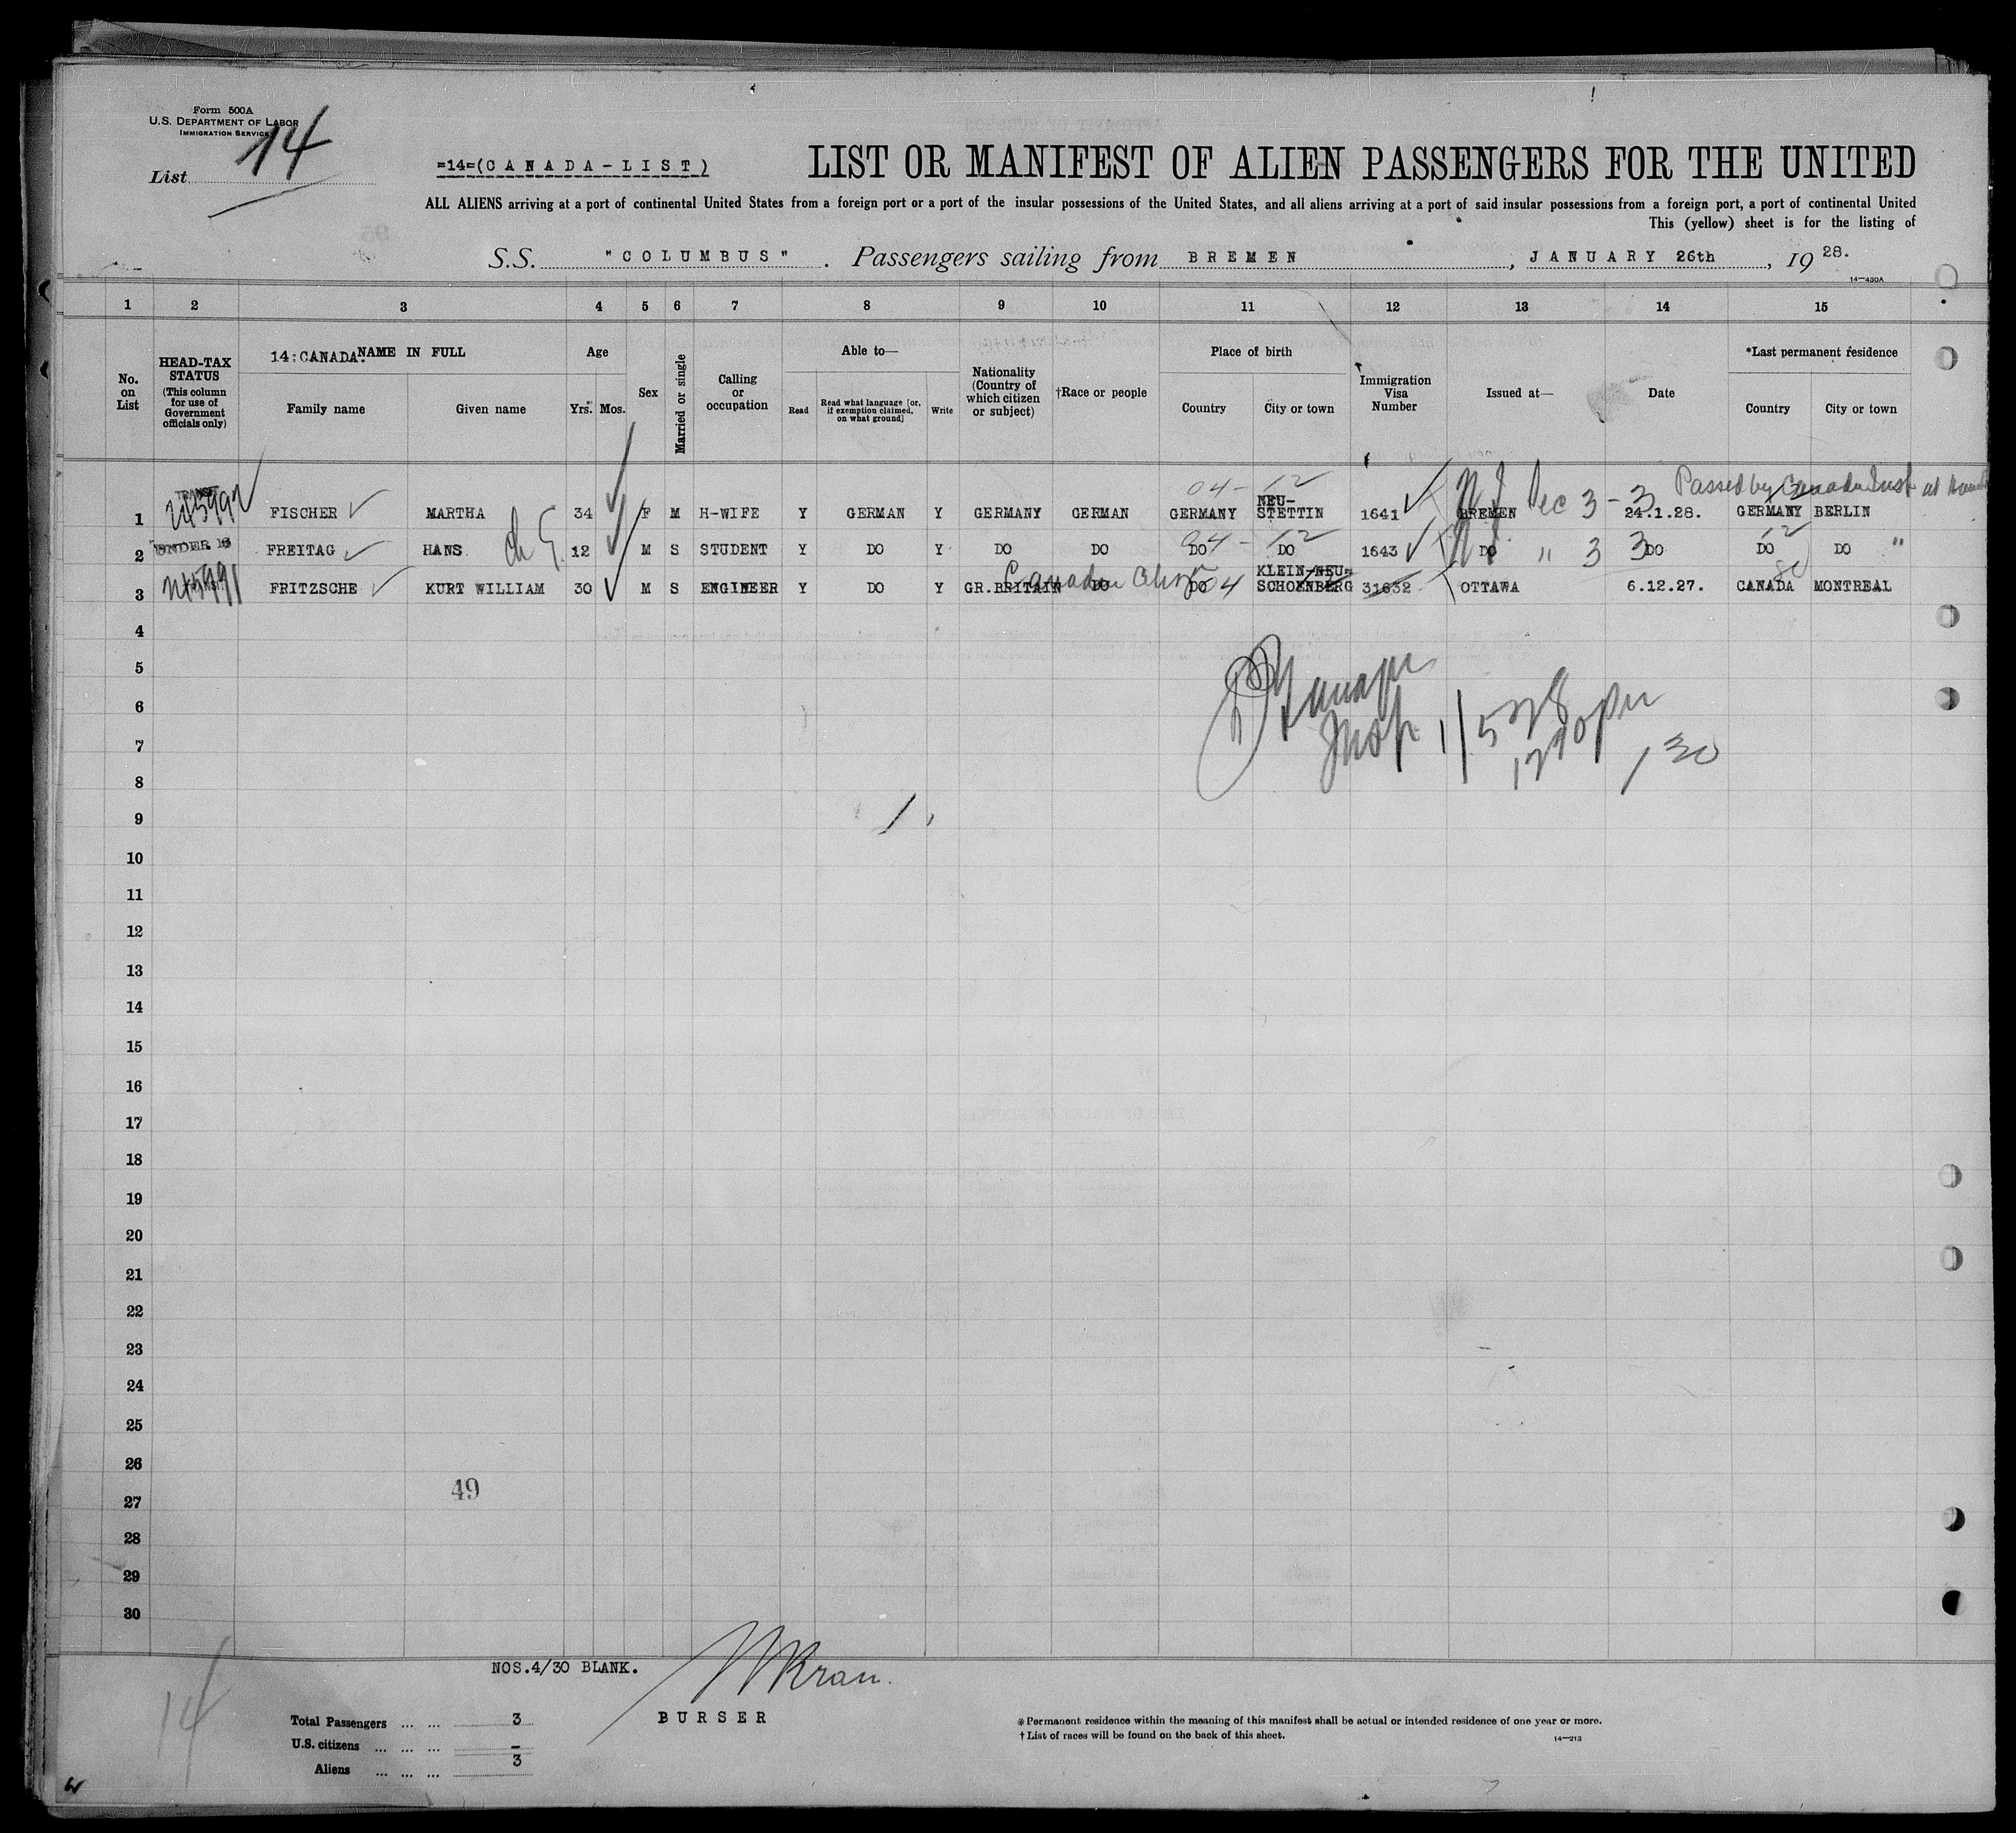 Form 500A
U.S. DEPARTMENT OF LABOR
IMMIGRATION SERVICE
List 14
=14=(CANADA-LIST)
LIST OR MANIFEST OF ALIEN PASSENGERS FOR THE UNITED
ALL ALIENS arriving at a port of continental United States from a foreign port or a port of the insular possessions of the United States, and all aliens arriving at a port of said insular possessions from a foreign port, a port of continental United
This (yellow) sheet is for the listing of
S.S. "COLUMBUS". Passengers sailing from BREMEN, JANUARY 26th, 1928.
14—430A
1 2 3 4 5 6 7 8 9 10 11 12 13 14 15
No. on List
HEAD-TAX STATUS (This column for use of Government officials only)
14:CANADA. NAME IN FULL
Family name Given name
Age
Yrs. Mos.
Sex
Married or single
Calling or occupation
Able to—
Read
Read what language [or, if exemption claimed, on what ground]
Write
Nationality (Country of which citizen or subject)
†Race or people
Place of birth
Country City or town
Immigration Visa Number
Issued at—
Date
*Last permanent residence
Country City or town
04- 12 Passed by Canada Inst at
1 FISCHER MARTHA 34 F M H-WIFE Y GERMAN Y GERMANY GERMAN GERMANY NEU-STETTIN 1641 BREMEN Sec 3 - 3 24.1.28. GERMANY BERLIN
04 - 12 12
2 UNDER 16 FREITAG HANS 12 M S STUDENT Y DO Y DO DO DO DO 1643 DO " 3 3 DO DO DO "
3 FRITZSCHE KURT WILLIAM 30 M S ENGINEER Y DO Y GR.BRITAIN DO DO 04 KLEIN-NEU-SCHOENBERG 31632 OTTAWA 6.12.27. CANADA MONTREAL
4
5
6
7
8
9
10
11
12
13
14
15
16
17
18
19
20
21
22
23
24
25
26
27
28
29
30
130
49
NOS.4/30 BLANK.
14
BURSER
Total Passengers ... ... 3
U.S. citizens ... ... ... –
Aliens ... ... ... 3
* Permanent residence within the meaning of this manifest shall be actual or intended residence of one year or more.
† List of races will be found on the back of this sheet.
14—213